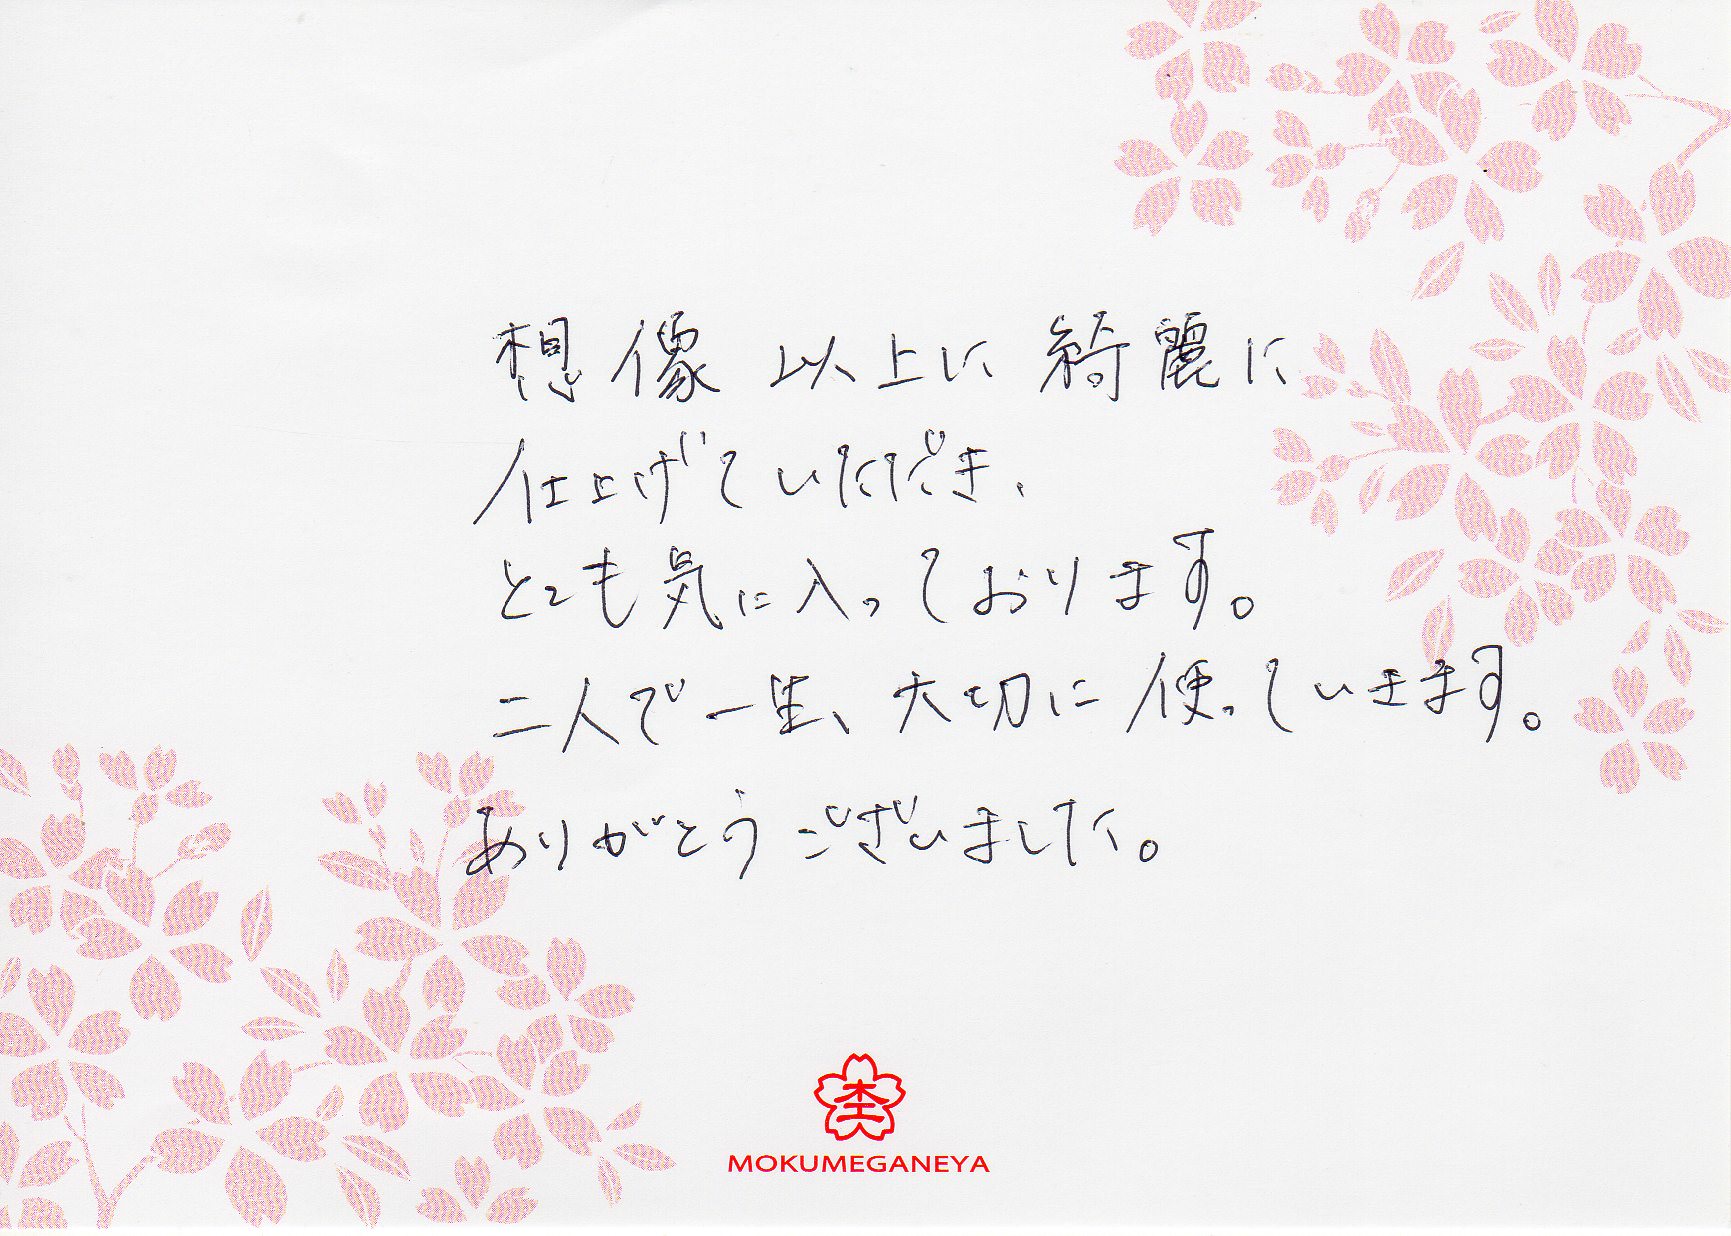 想像以上に綺麗に
仕上げていただき、
とても気に入っております。
二人で一生、大切に使っていきます。
ありがとうございました。
MOKUMEGANEYA